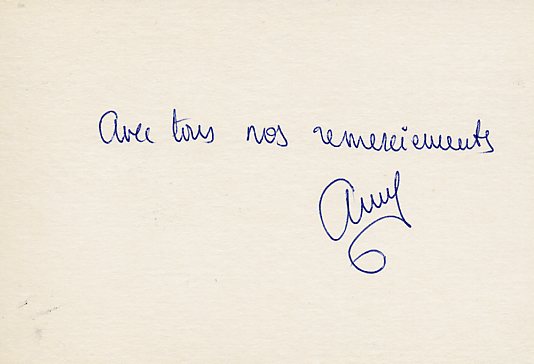 Avec tous nos remerciements
Anny